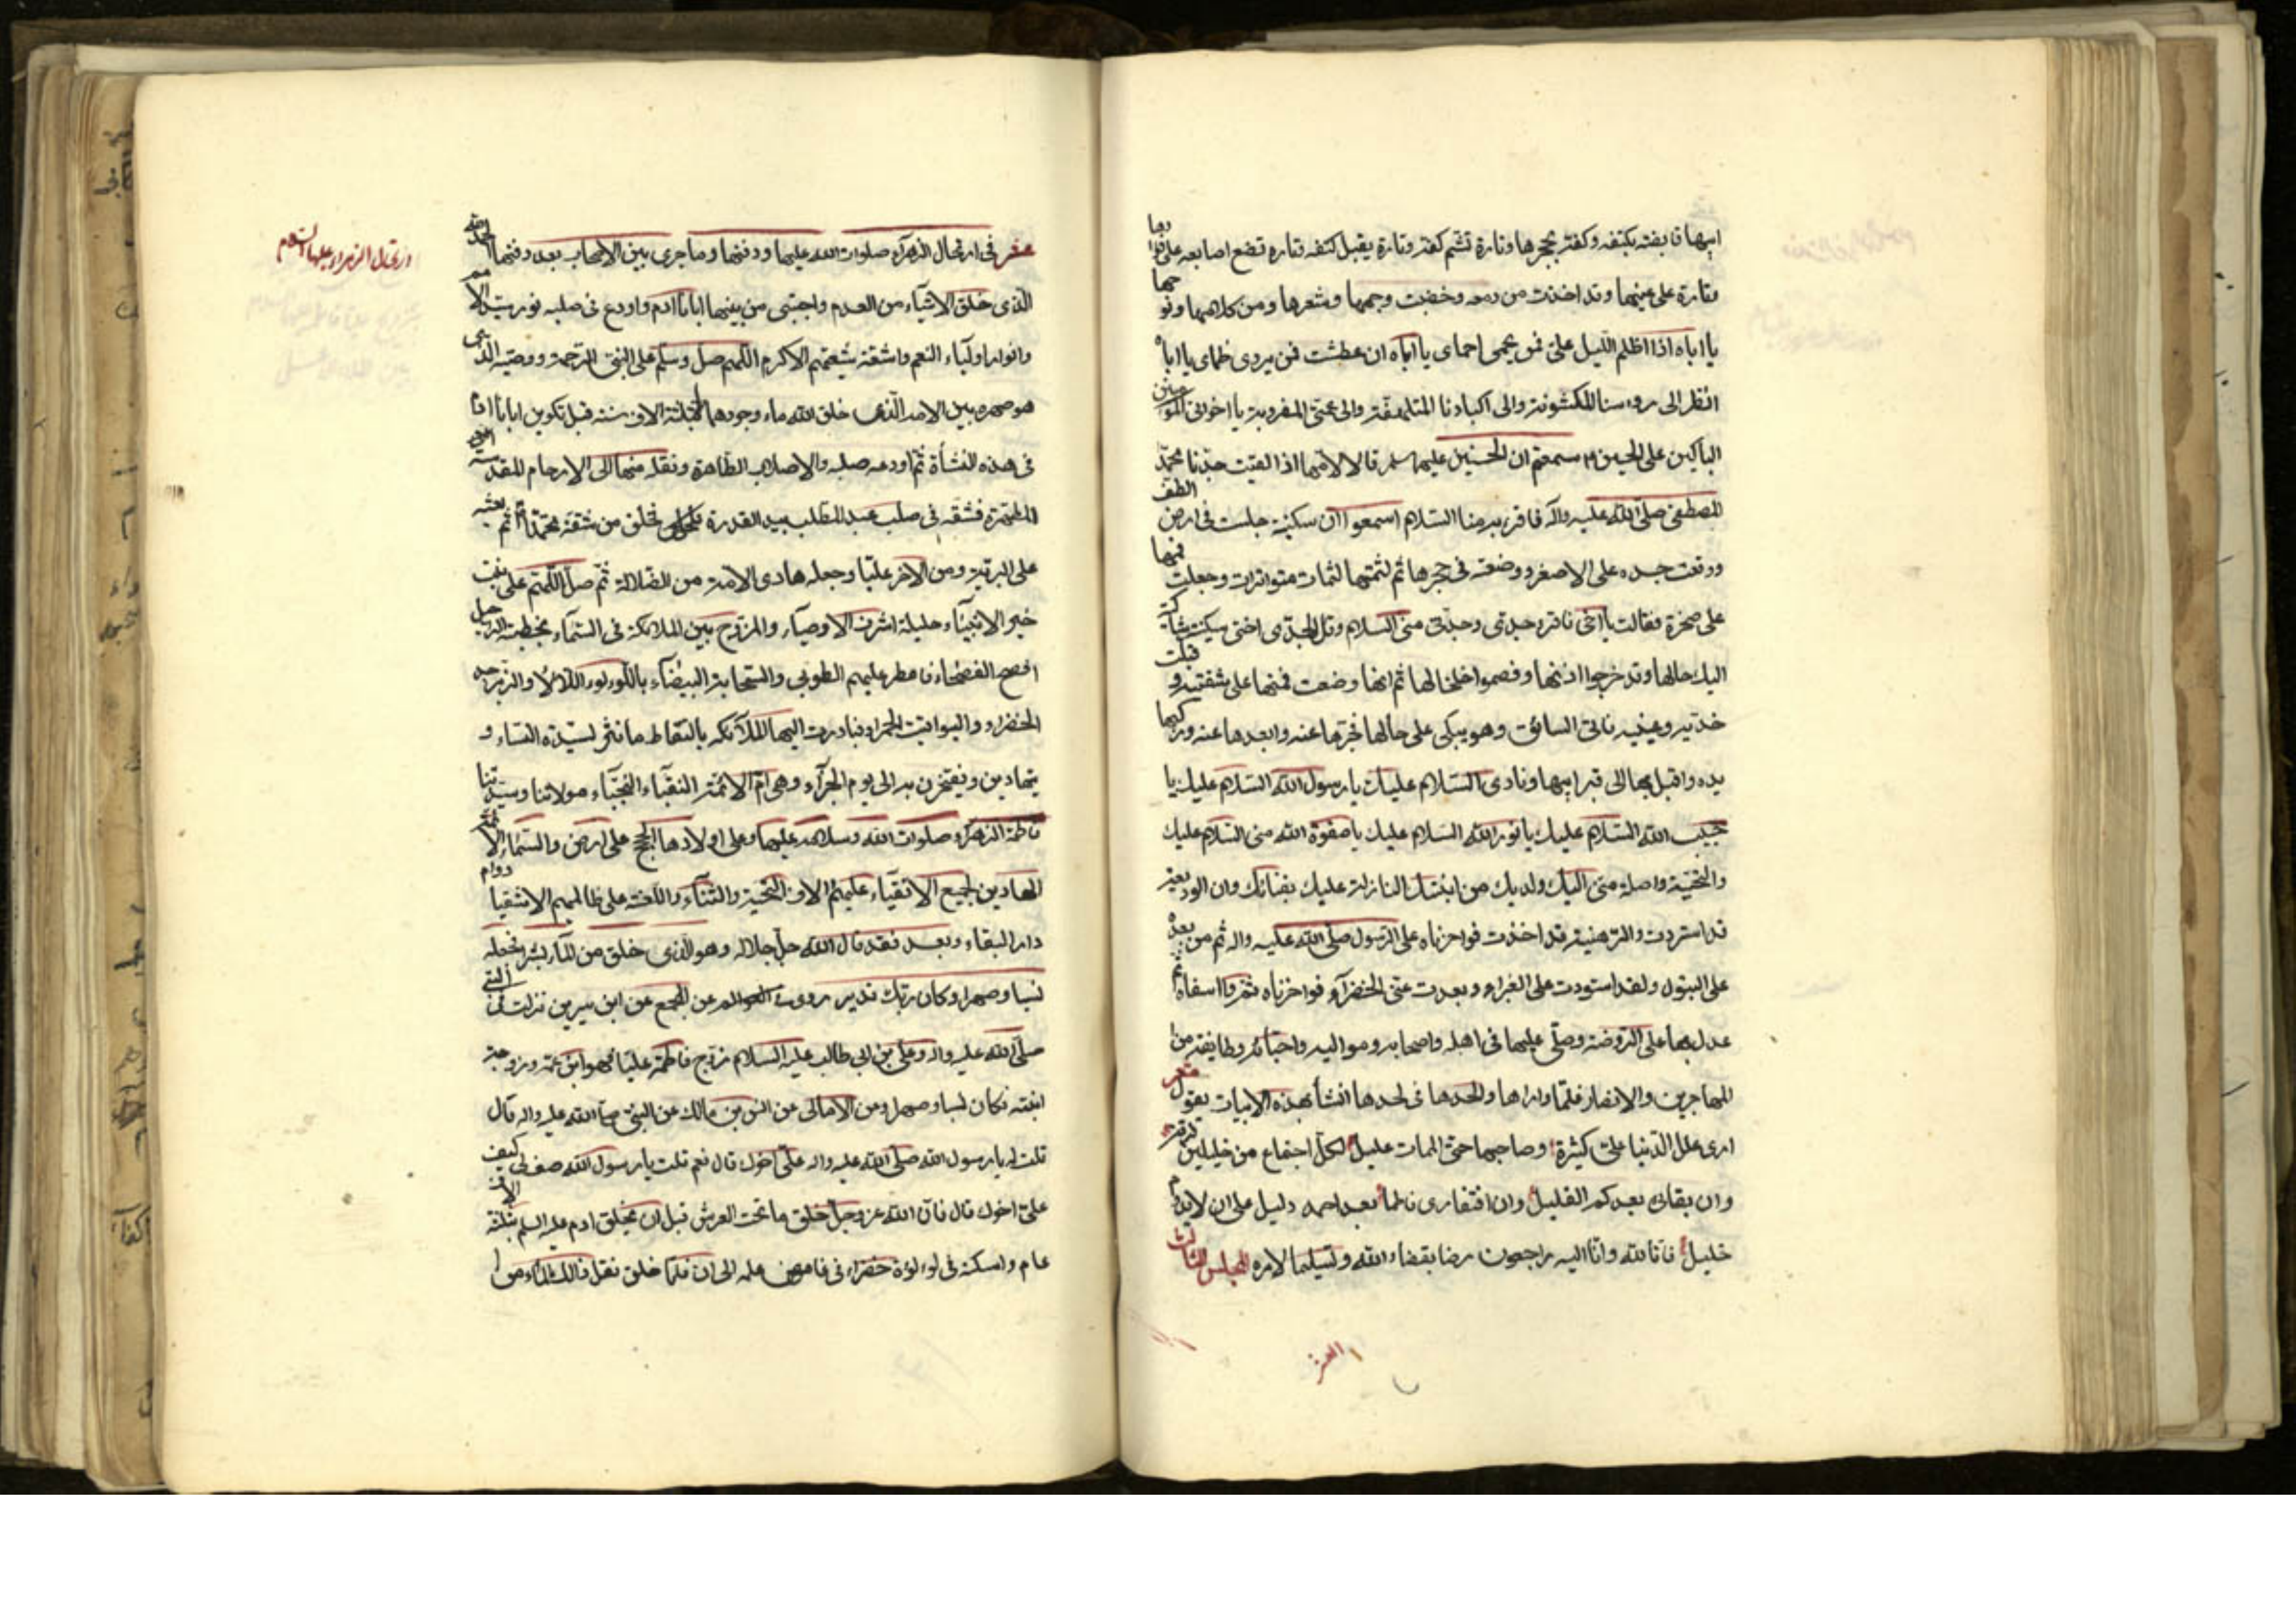 ابيها قابضته بكتفه وكفنه بحجرها وتارة تشم كفنه وتارة يقبل كتفه وتاره تضع اصابعه على
وتارة على عينيها وقد اخذت من دمه وخضبت وجهها وشعرها ومن كلامهما
يا اباه اذا اظلم الليل علىّ فمن يحمى احماى يا اباه ان عطشت فمن يروى ظماى يا اباه
انظر الى رءوسنا المكشوفة والى اكبادنا المتلهفة والى عمتى المضروبة يا اخوانى
الباكين على الحسين سمعتم ان الحسنين عليهما سلم قالا لامهما اذا لقيت جدنا محمد
المصطفى صلى الله عليه واله فاقريه منا السلام اسمعوا ان سكينة جلست فى ارض الطف
ووقعت جسده على الاصغر ووضعته فى حجرها ثم لثمتها لثمات متواترات وجعلت فمها
على صخرة فقالت يا اخى اقرء جدتى وجدى منى السلام وقل لجدى اختى سكينة
اليك حالها وقد خرجوا اذنها وفصموا خلخالها ثم انها وضعت فمها على شفتيه وقبلت
خديه وعينيه فاتى السائق وهو يبكى على حالها فجرها عنه وابعدها عنه
يده واقبل بها الى قبر ابيها ونادى السلام عليك يا رسول الله السلام عليك يا
حبيب الله السلام عليك يا نور الله السلام عليك يا صفوة الله منى السلام عليك
والتحية واصلة منى اليك ولديك من ابنتك النازلة عليك بفنائك وان الوديعة
قد استردت والرهينة قد اخذت فواحزناه على الرسول صلى الله عليه واله ثم من بعده
على البتول ولقد اسودت على الغبراء وبعدت عنى الخضراء فواحزناه ثم وا اسفاه ثم
عدل بها على الروضة وصلى عليها فى اهله واصحابه ومواليه واحبائه وطايفة من
المهاجرين والانصار فلما واراها والحدها فى لحدها انشأ بهذه الابيات يقول شعر
ارى علل الدنيا علىّ كثيرة وصاحبها حتى الممات عليل لكل اجتماع من خليلين فرقة
وان بقائى بعدكم لقليل وان افتقادى فاطما بعد احمد دليل على ان لا يدوم
خليل فانا لله وانا اليه راجعون رضا بقضاء الله وتسليما لامره المجلس الثالث
العشر
عشر فى ارتحال الزهراء صلوات الله عليها ودفنها وما جرى بين الاصحاب بعد دفنها الحمد لله
الذى خلق الاشياء من العدم واجتبى من بينهما ابانا ادم واودع فى صلبه نور سيد الامم
وانوار اولياء النعم واشقة شيعتهم الاكرم اللهم صل وسلم على النبى الرحمة ووصيه الذى
هو صهره بين الامة الذى خلق الله ماء وجودهما ثلثة الاف سنة قبل تكوين ابانا
فى هذه النشأة ثم اودعه صلبه والاصلاب الطاهرة ونقله منها الى الارحام المقدسة
المطهرة فشقه فى صلب عبد المطلب بيد القدرة فخلق من شقة محمدا ثم بعثه
على البرية ومن الاخر عليا وجعله هادى الامة من الضلالة ثم صل اللهم على بنت
خير الانبياء حليلة اشرف الاوصياء والمزوج بين الملائكة فى السماء بخطبة
افصح الفصحاء فامطر عليهم الطوبى والسحابة البيضاء باللؤلؤ اللالاء والزبرجد
الخضراء واليواقيت الحمراء فبادرت اليها الملائكة بالتقاط ما نثر لسيدة النساء و
يتهادين ويفتخرن به الى يوم الجزاء وهى ام الائمة النقباء النجباء مولاتنا وسيدتنا
فاطمة الزهراء صلوات الله وسلامه عليها وعلى اولادها الحجج على ارض والسماء الائمة
الهادين لجميع الاتقياء عليهم الاف التحية والثناء واللعنة على ظالميهم الاشقيا دوام
دار البقاء وبعد فقد قال الله جل جلاله وهو الذى خلق من الماء بشرا فجعله
نسبا وصهرا وكان ربك قدير روى العوالم عن المجمع عن ابن سيرين نزلت فى النبى
صلى الله عليه واله وعلى بن ابى طالب عليه السلام زوج فاطمة عليا فهو ابن عمه وزوج
ابنته فكان نسبا وصهرا ومن الامالى عن انس بن مالك عن النبى صلى الله عليه واله قال
قلت له يا رسول الله صلى الله عليه واله على اخوك قال نعم قلت يا رسول الله صف لى كيف
على اخوك قال فان الله عز وجل خلق ماء تحت العرش قبل ان يخلق ادم عليه السلم بثلثة الاف
عام واسكنه فى لؤلؤة خضراء فى غامض علمه الى ان فلما خلق نقل ذلك الماء من ا
ارتحال الزهراء عليها السلام